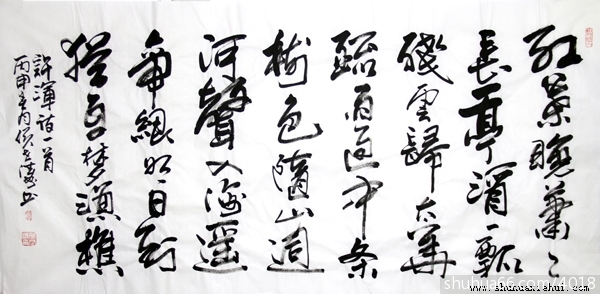 红葉晚蕭々
長亭酒一瓢
殘雲歸太華
疏雨過中条
樹色隨山迥
河聲入海遥
帝鄉明日到
猶自夢漁樵
許渾詩一首
丙申年
shuhua66.com/4018
www.shuhuaxiehui.com